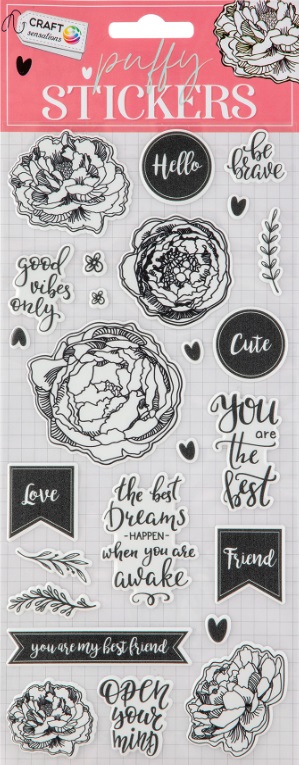 CRAFT
sensations
puffy
STICKERS
Hello
be
brave
good
vibes
only
Cute
You
are
the
best
Love
the best
Dreams
- HAPPEN -
when you are
awake
Friend
you are my best friend
OPEN
your
mind